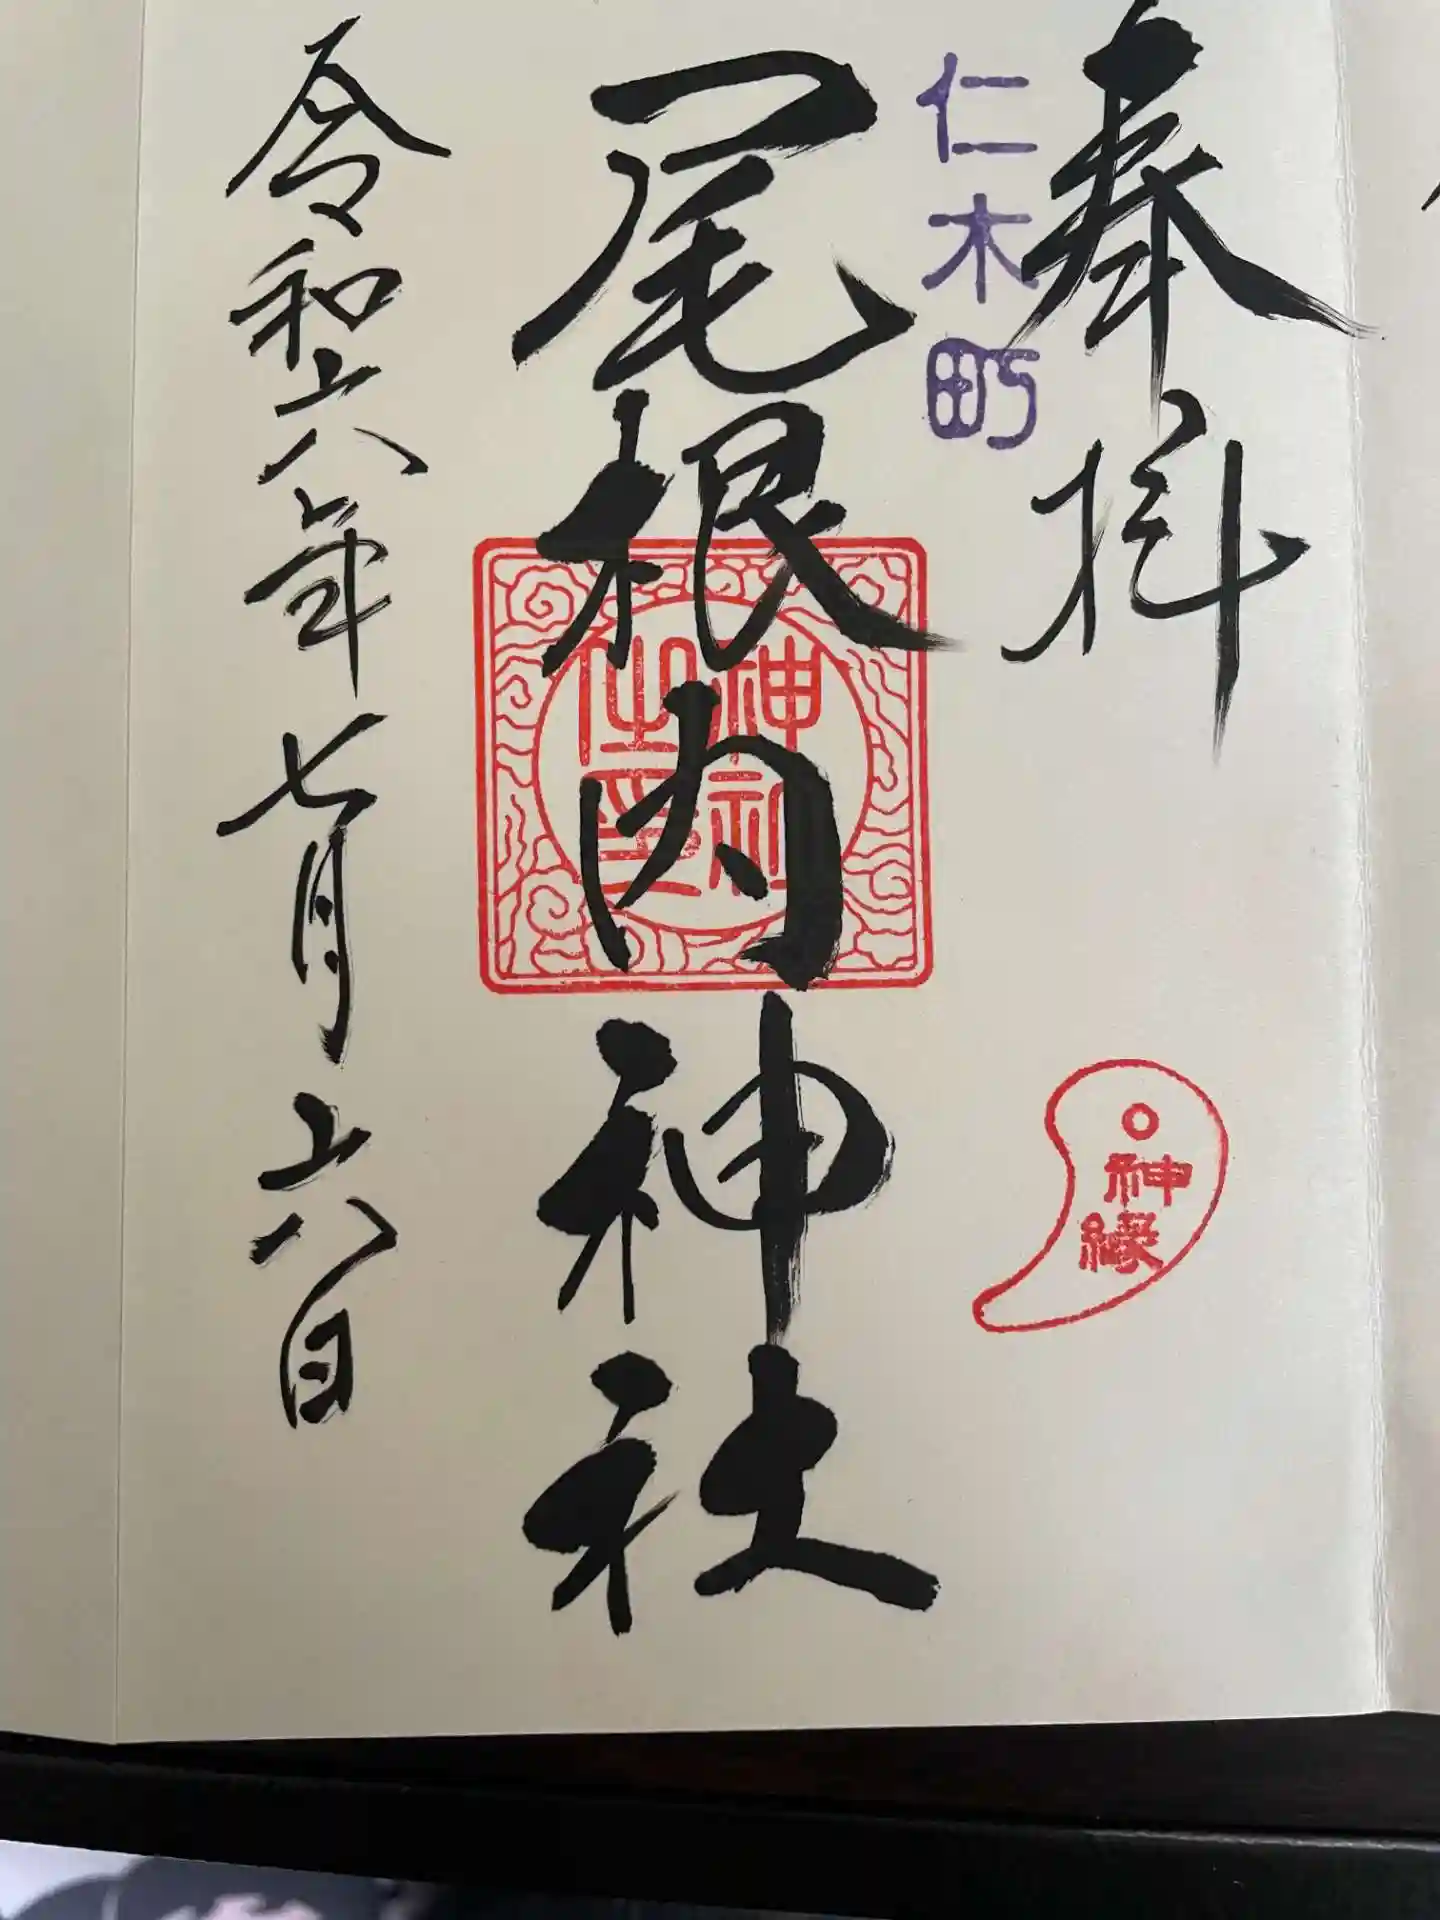 奉拝
仁木町
神縁
尾根内神社
神社
御印
令和六年七月六日